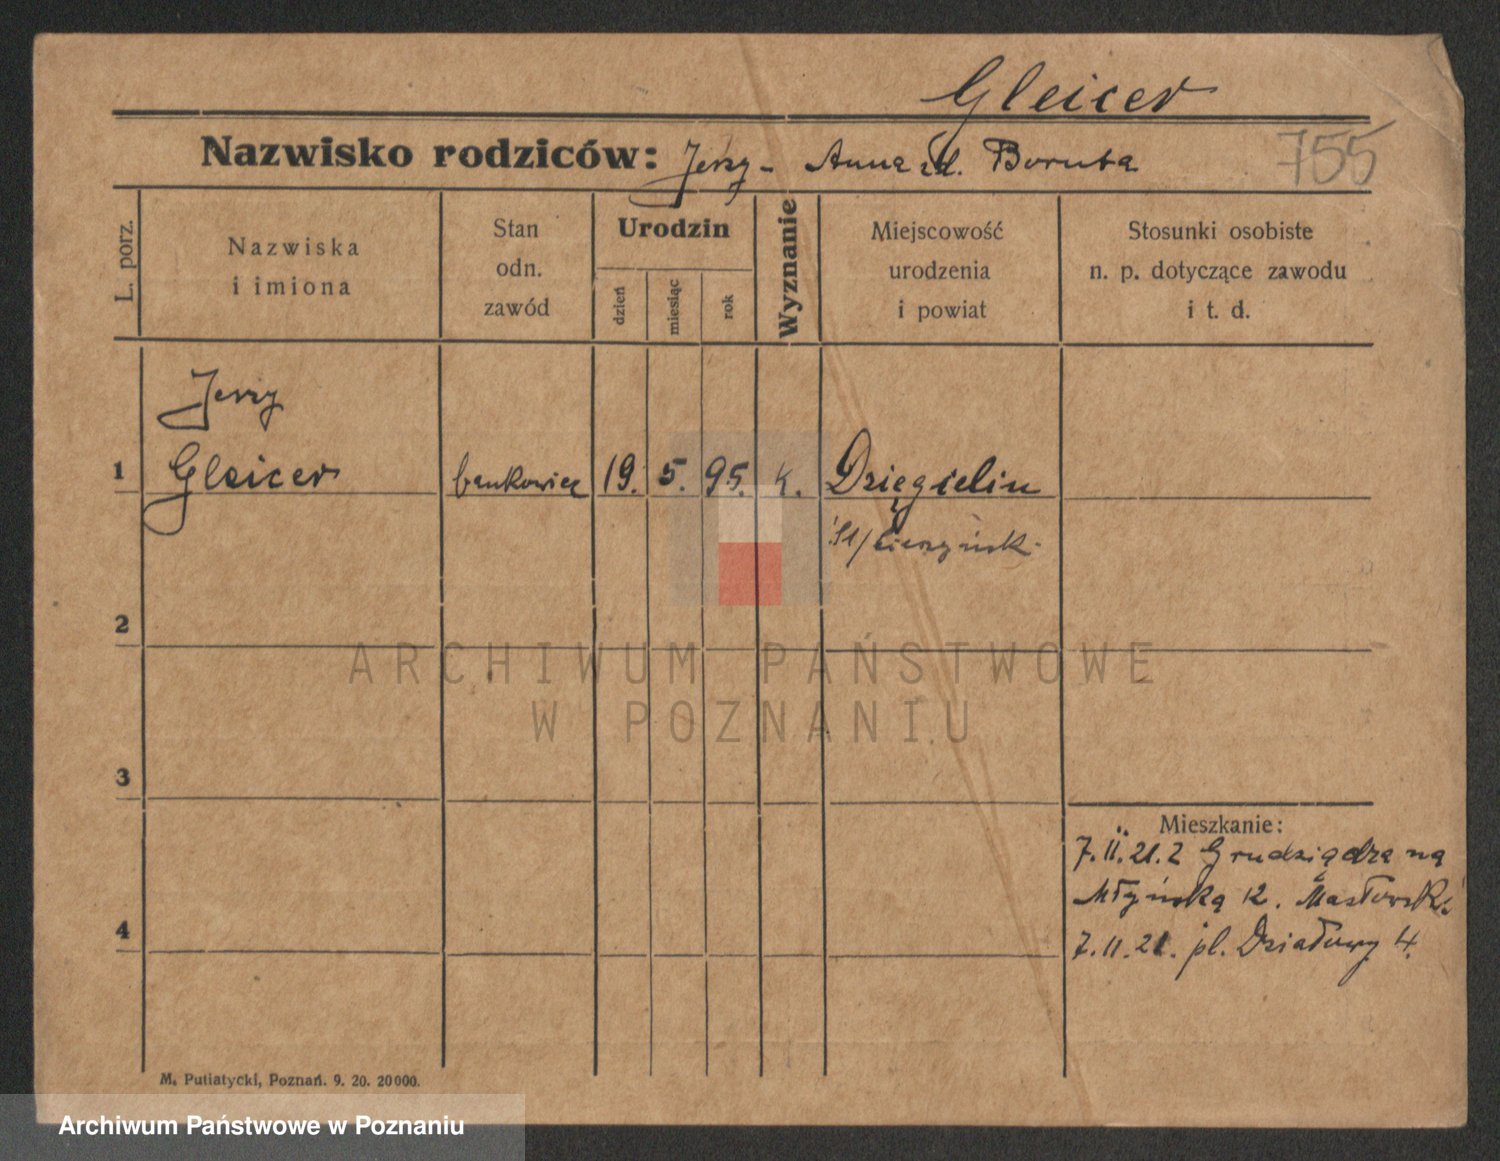 Gleicer
Nazwisko rodziców: Jerzy - Anna zd. Boruta
755
L. porz.
Nazwiska
i imiona
Stan
odn.
zawód
Urodzin
dzień
miesiąc
rok
Wyznanie
Miejscowość
urodzenia
i powiat
Stosunki osobiste
n. p. dotyczące zawodu
i t. d.
Jerzy
1 Gleicer bankowiec 19. 5. 95. k. Dzięgielin
Śl/Cieszyńsk.
2
ARCHIWUM PAŃSTWOWE
W POZNANIU
3
Mieszkanie:
7.II.21. z Grudziądza na
Młyńską 12.
4
7.11.21. pl. Działowy 4.
M. Putiatycki, Poznań. 9. 20. 20000.
Archiwum Państwowe w Poznaniu